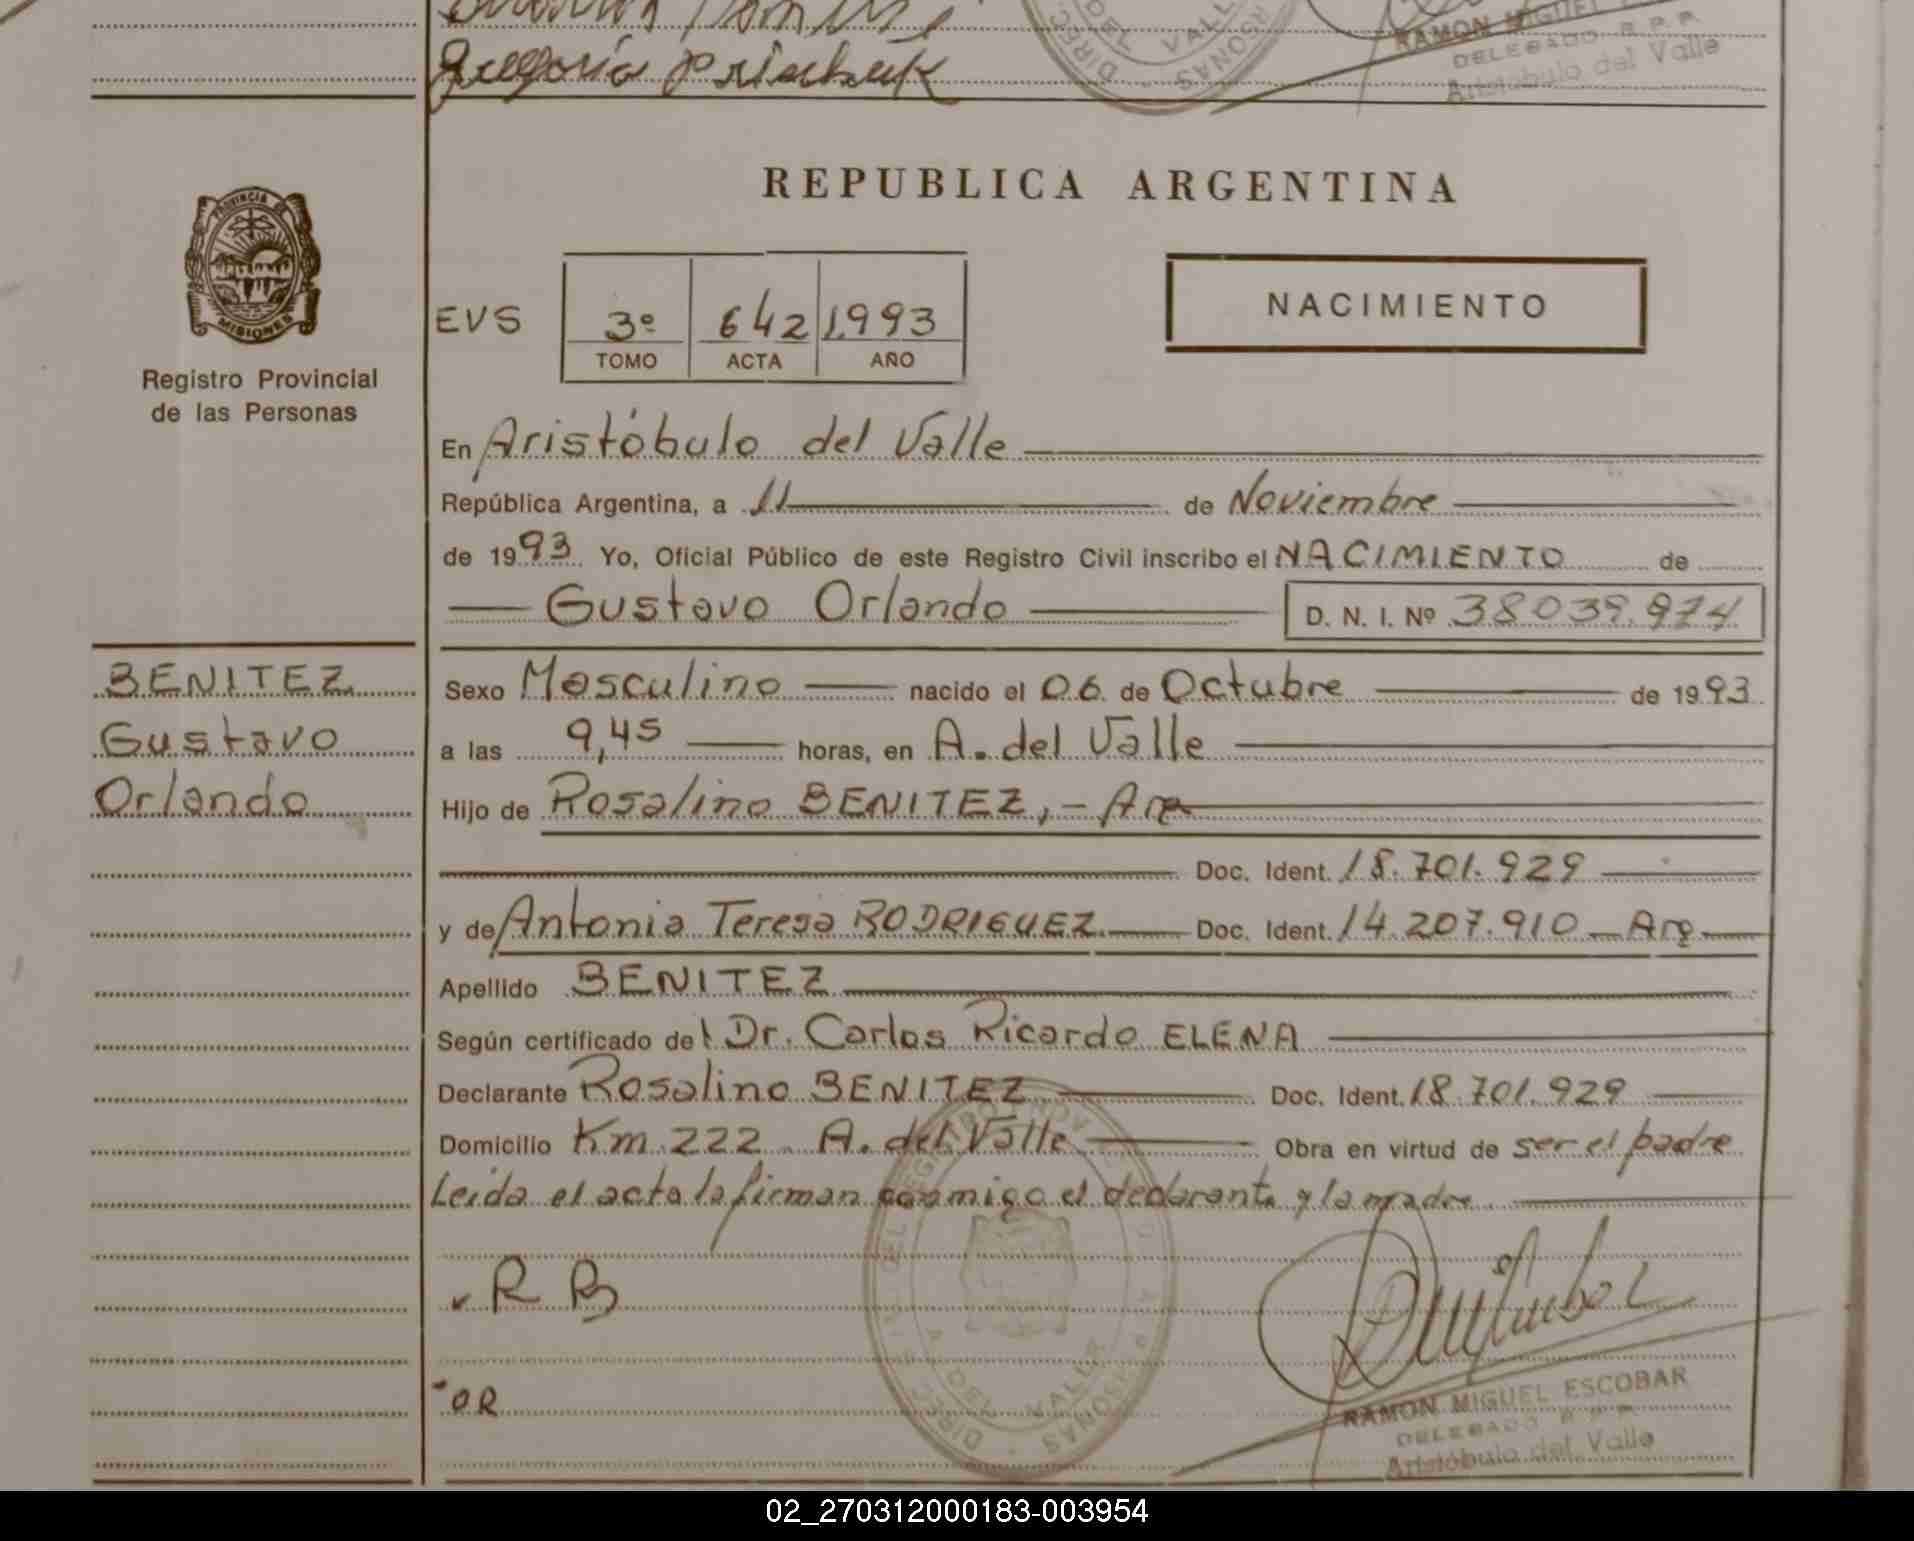 Gregorio
DEL VALLE
RAMON MIGUEL
DELEGADO R.P.P.
Aristóbulo del Valle
REPUBLICA ARGENTINA
PROVINCIA DE
MISIONES
Registro Provincial
de las Personas
EVS
3º 642 1993
TOMO ACTA AÑO
NACIMIENTO
En Aristóbulo del Valle
República Argentina, a 11 de Noviembre
de 1993 Yo, Oficial Público de este Registro Civil inscribo el NACIMIENTO de
Gustavo Orlando D. N. I. Nº 38039.974
BENITEZ
Gustavo
Orlando
Sexo Masculino nacido el 06 de Octubre de 1993
a las 9,45 horas, en A. del Valle
Hijo de Rosalino BENITEZ, - Arg
Doc. Ident. 18.701.929
y de Antonia Teresa RODRIGUEZ Doc. Ident. 14.207.910 - Arg
Apellido BENITEZ
Según certificado del Dr. Carlos Ricardo ELENA
Declarante Rosalino BENITEZ Doc. Ident. 18.701.929
Domicilio Km 222 A. del Valle Obra en virtud de ser el padre
Leida el acta la firman conmigo el declarante y la madre
R B
OR
A. DEL VALLE
RAMON MIGUEL ESCOBAR
DELEGADO R.P.P.
Aristóbulo del Valle
02_270312000183-003954